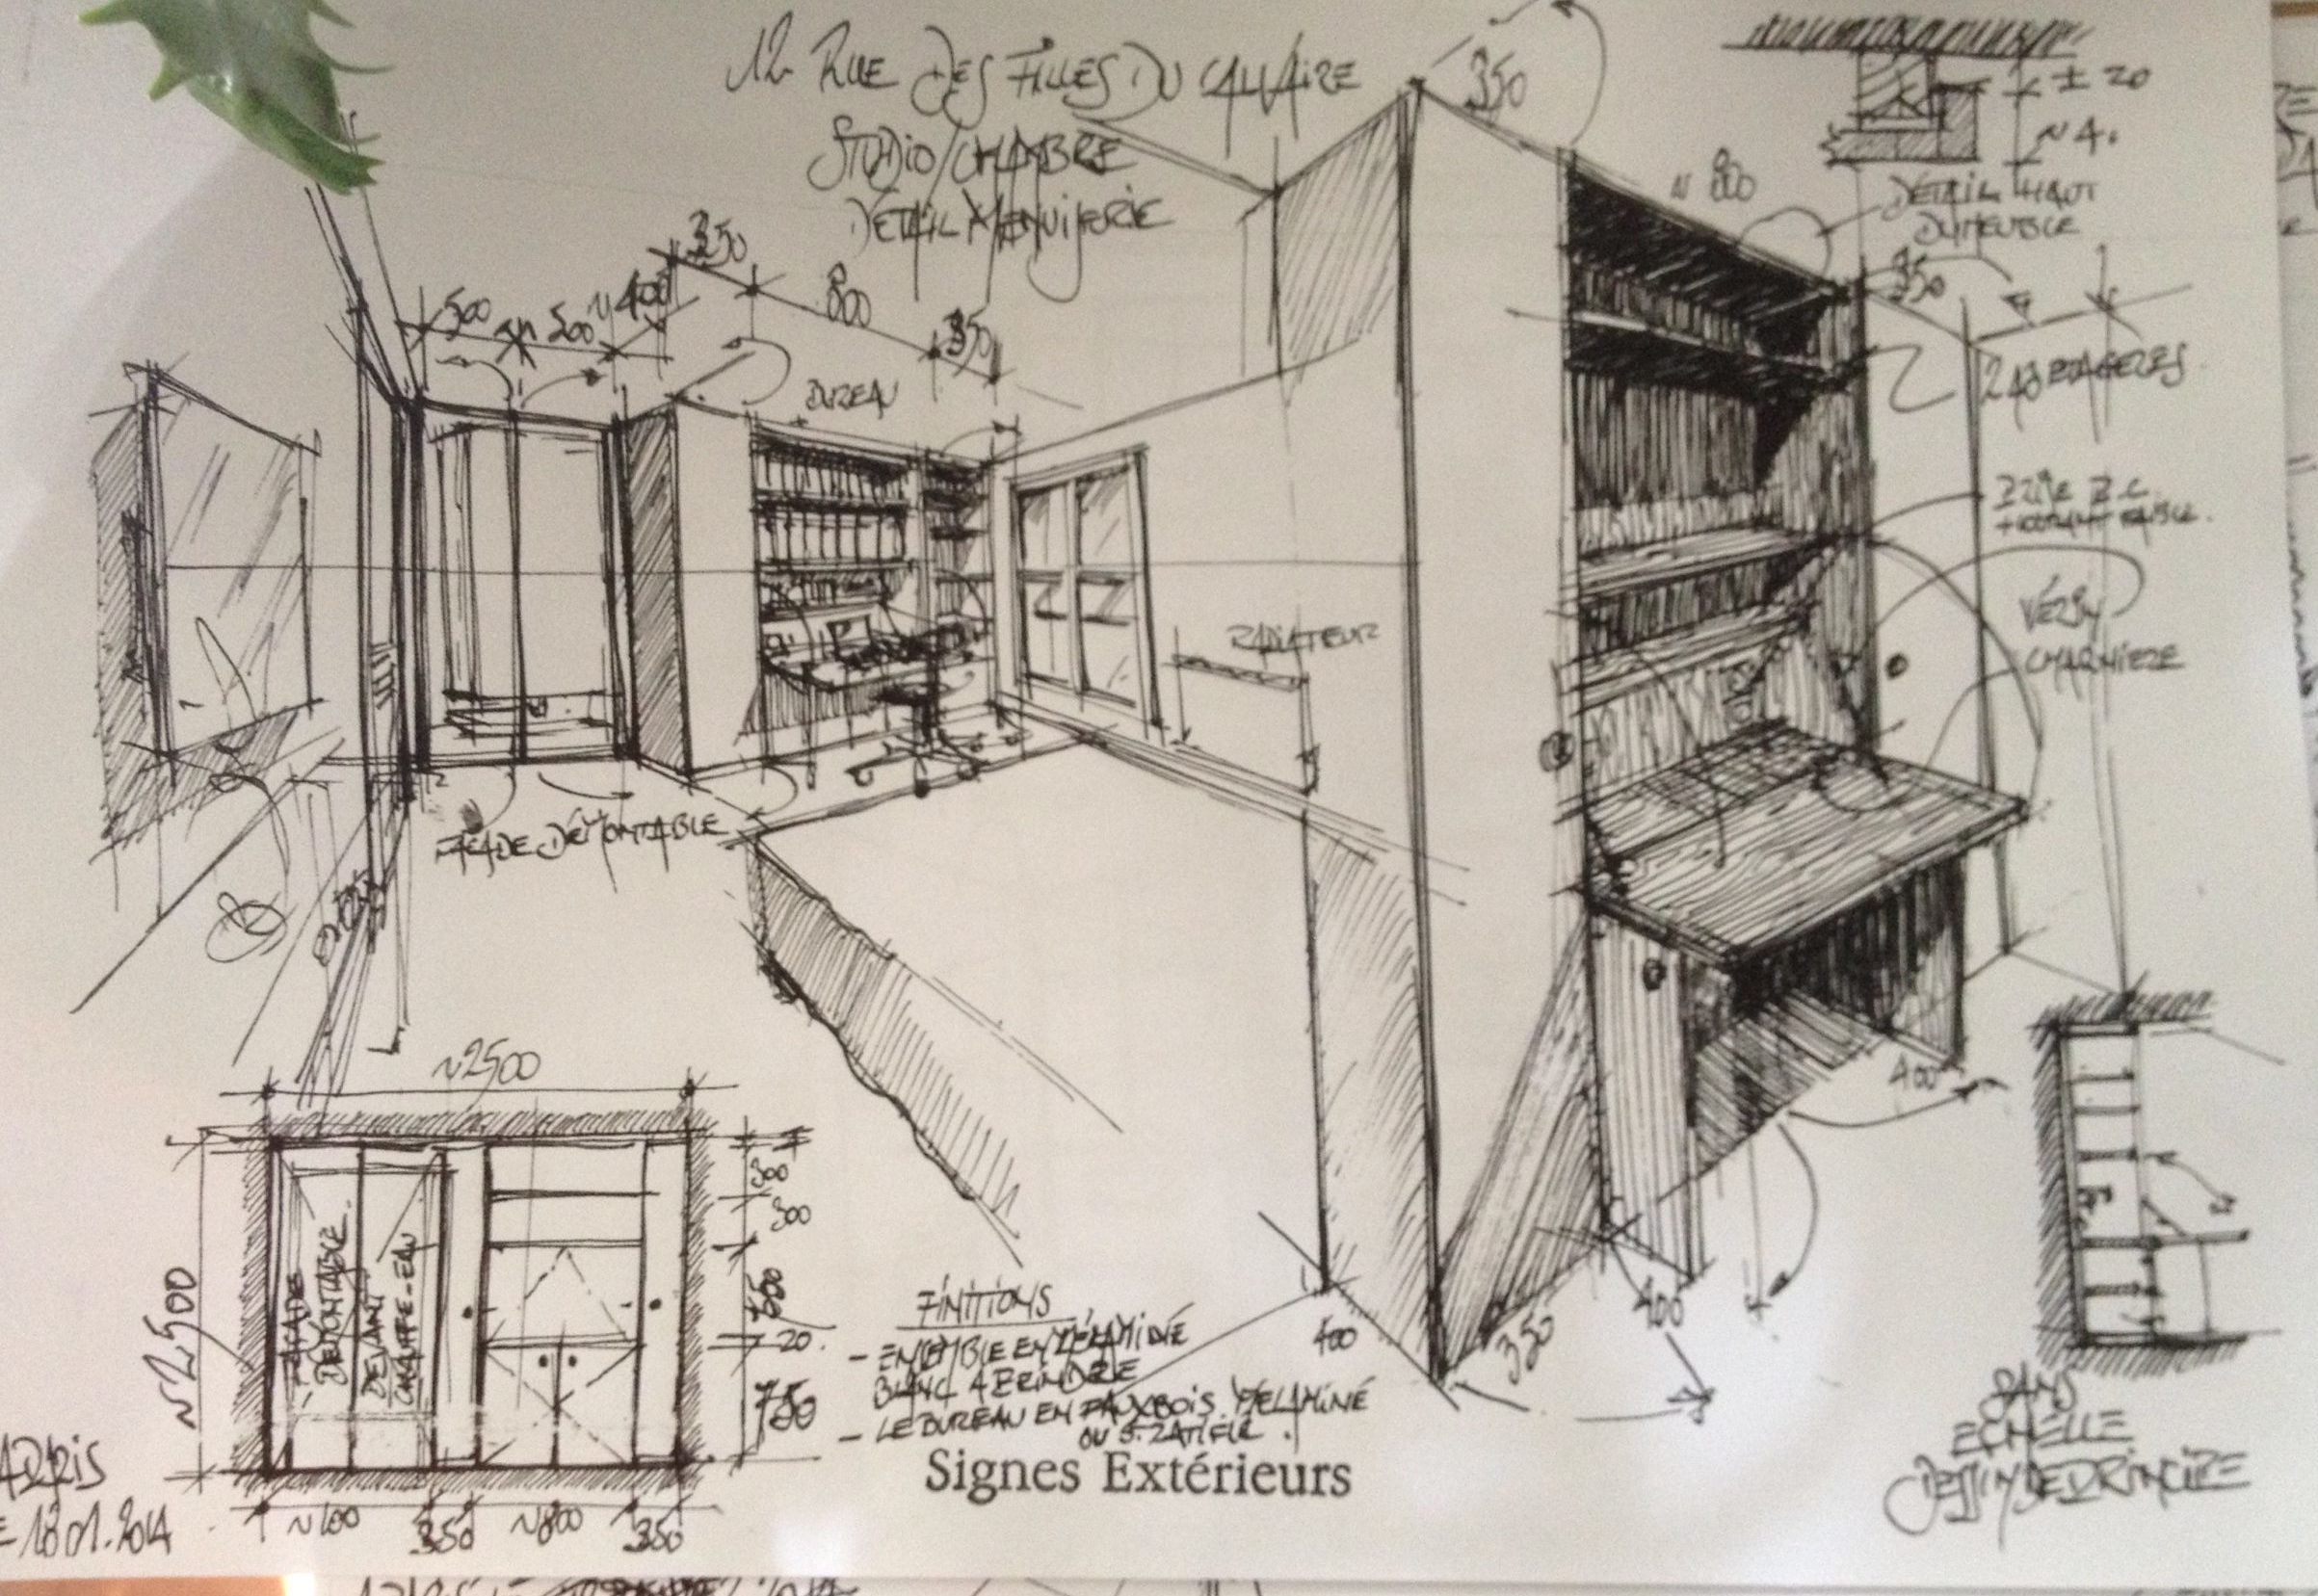 12 RUE DES FILLES DU CALVAIRE
STUDIO/CHAMBRE
DÉTAIL MENUISERIE
350
± 20
~4.
DÉTAIL HAUT
DU MEUBLE
~ 800
350
2 ÉTAGÈRES
VÉRIN
CHARNIERE
350
800
350
500
500
~400
BUREAU
RADIATEUR
FAÇADE DÉMONTABLE
~2500
~2500
FAÇADE
DÉMONTABLE
DEVANT
CHAUFFE-EAU
300
300
20
750
350
~800
350
FINITIONS
- ENSEMBLE EN MÉLAMINÉ
BLANC A PEINDRE
- LE BUREAU EN FAUX BOIS MÉLAMINÉ
OU STRATIFIÉ.
Signes Extérieurs
400
350
400
400
SANS
ECHELLE
DESSIN DE PRINCIPE
PARIS
LE 18.01.2014